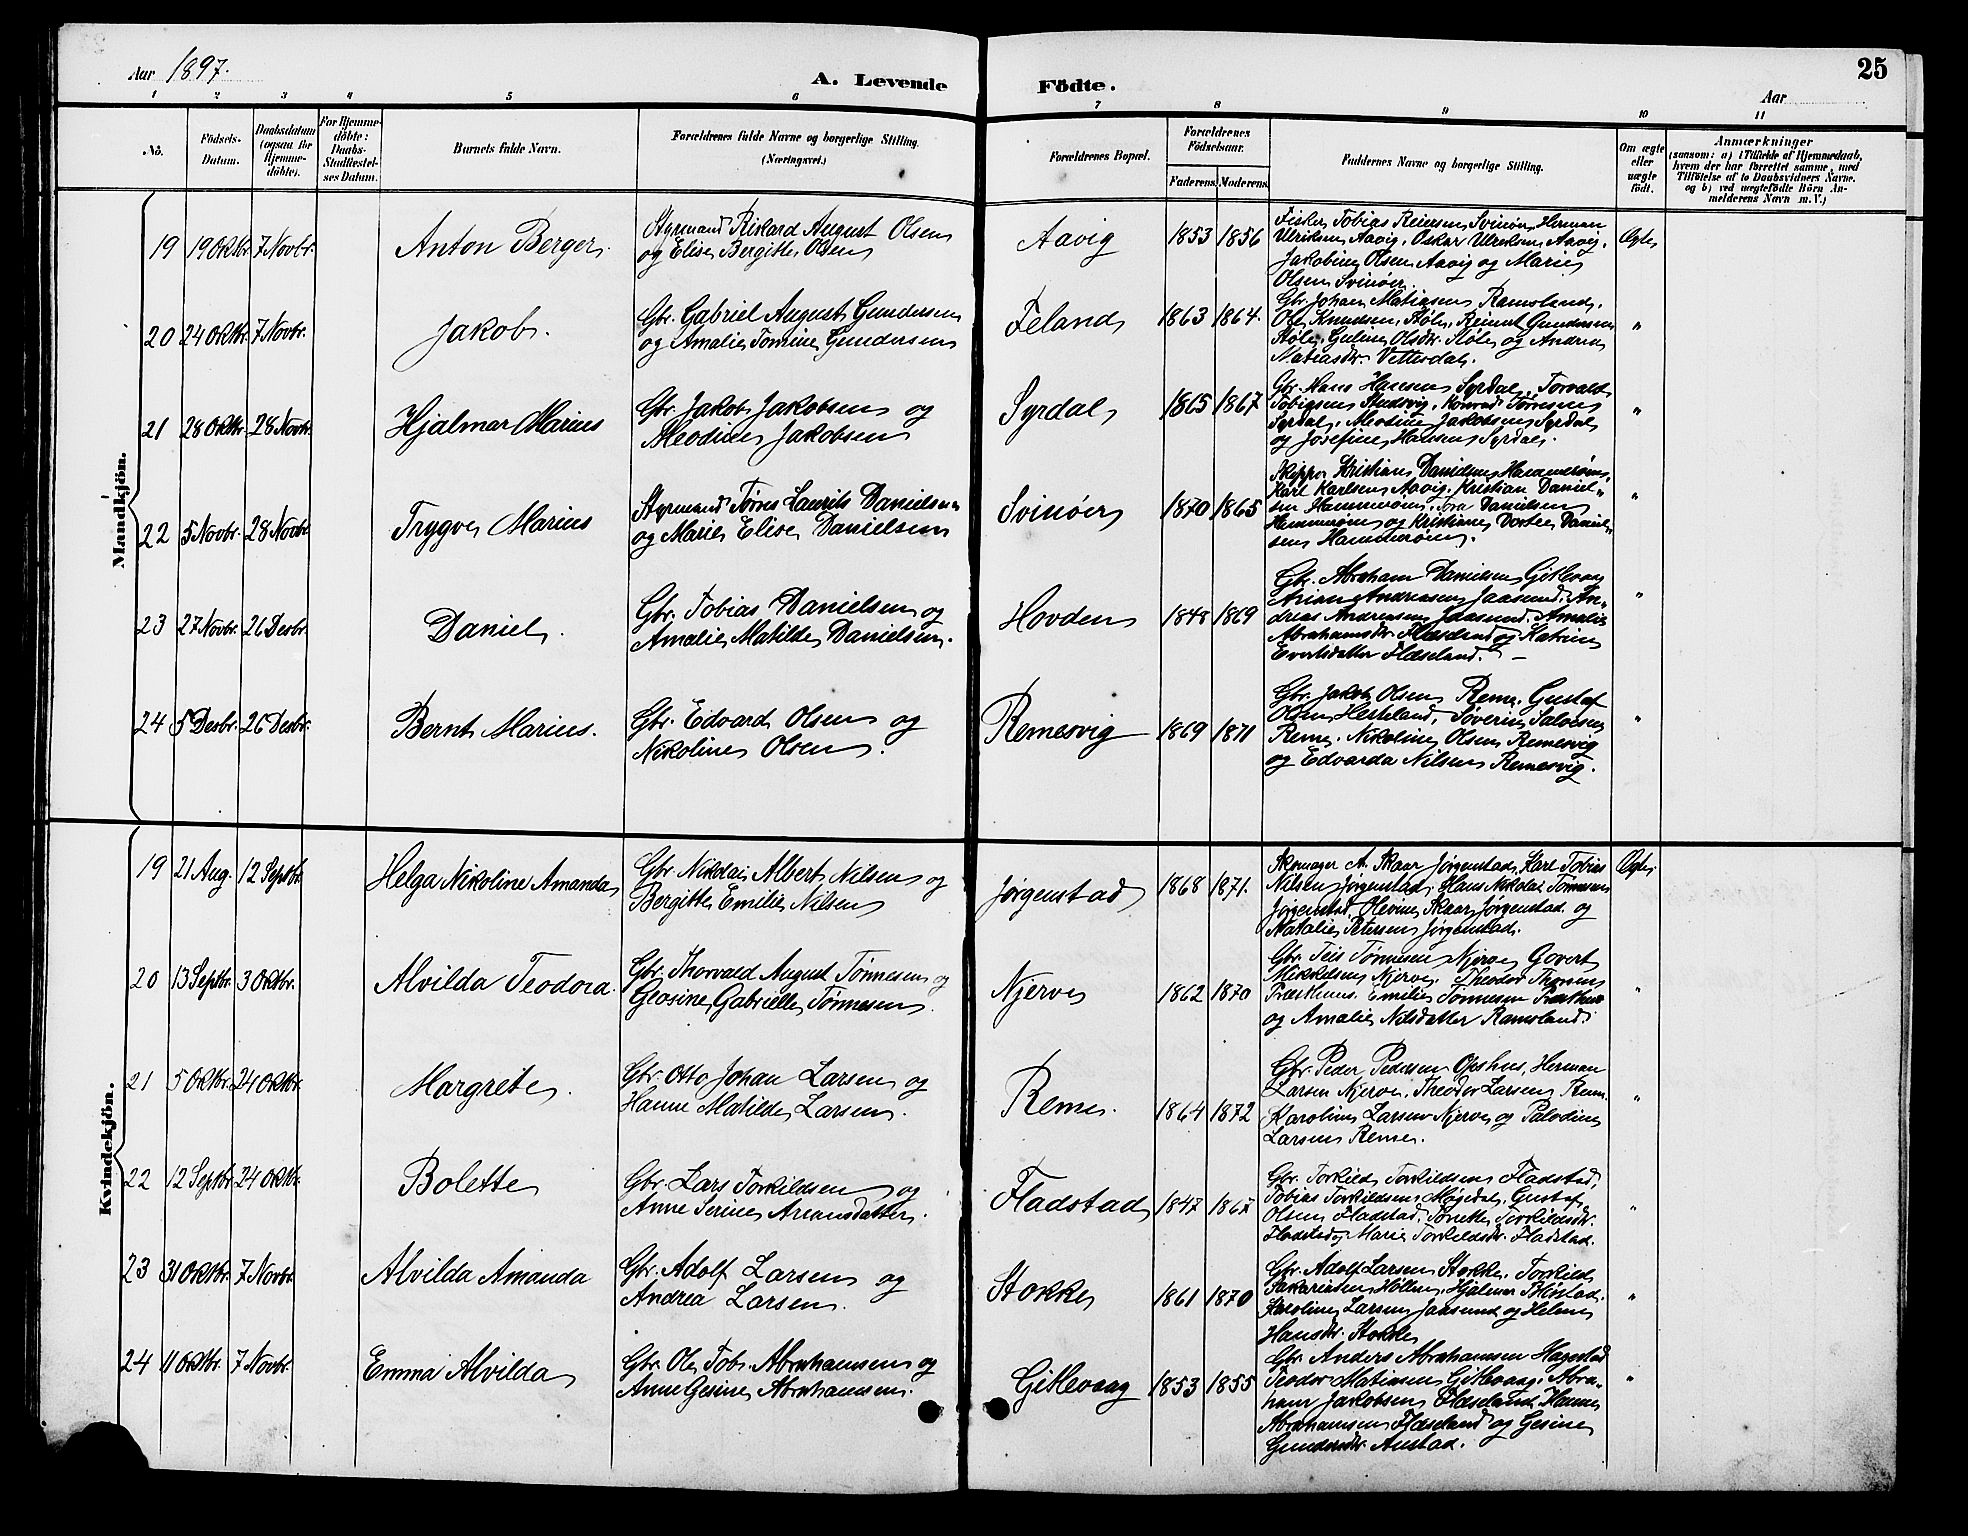 Aar 1897.
A. Levende Födte.
Aar
25
1 2 3 4 5 6 7 8 9 10 11
No.
Födsels-Datum.
Daabsdatum (ogsaa for Hjemmedöbte).
For Hjemmedöbte: Daabs-Stadfæstelses Datum.
Barnets fulde Navn.
Forældrenes fulde Navne og borgerlige Stilling. (Næringsvei.)
Forældrenes Bopæl.
Forældrenes Födselsaar.
Faderens. Moderens.
Faddernes Navne og borgerlige Stilling.
Om ægte eller uægte födt.
Anmærkninger
(saasom: a) i Tilfælde af Hjemmedaab, hvem der har forrettet samme, med Tilföielse af to Daabsvidners Navne. og b) ved uægtefödte Börn Anmelderens Navn m. V.)
Mandkjön.
19 19 Oktbr. 7 Novbr. Anton Berger.
Styrmand Rikard August Olsen
og Elise Bergitte Olsen
Aavig 1853 1856
Fisker Tobias Reiersen Svinöer, Herman
Ulriksen Aavig, Oskar Ulriksen Aavig,
Jakobine Olsen Aavig og Marie
Olsen Svinöer.
Ægte
20 24 Oktbr. 7 Novbr. Jakob.
Gbr. Gabriel August Gundersen
og Amalie Tomine Gundersen
Feland 1863 1864.
Gbr. Johan Matiasen Ramsland,
Ole Knudsen Støle, Reinert Gundersen
Støle, Guline Olsdtr. Støle og Andrea
Matiasdtr. Vettesdal.
"
21 28 Oktbr. 28 Novbr. Hjalmar Marius
Gbr. Jakob Jakobsen og
Meodine Jakobsen
Syrdal 1865 1867
Gbr. Hans Hansen Syrdal, Torvald
Tobiasen Studsvig, Konrad Tørresen
Syrdal, Meodine Jakobsen Syrdal
og Josefine Hansen Syrdal.
"
22 5 Novbr. 28 Novbr. Trygve Marius
Styrmand Tørres Laurits Danielsen
og Marie Elise Danielsen
Svinöer 1870 1865
Skipper Kristian Danielsen Hummerøen,
Karl Karlsen Aavig, Kristian Daniel-
sen Hummerøen, Tora Danielsen
Hummerøen og Kristiane Dortea Daniel-
sen Hummerøen.
"
23 27 Novbr. 26 Desbr. Daniel.
Gbr. Tobias Danielsen og
Amalie Matilde Danielsen.
Hovden 1848 1869
Gbr. Abraham Danielsen Gitlevaag
Andreasen Jaasund, An-
dreas Andreasen Jaasund, Amalie
Abrahamsdtr. Flæseland og Katrine
Evertsdatter Flæseland.
"
24 5 Desbr. 26 Desbr. Bernt Marius.
Gbr. Edvard Olsen og
Nikoline Olsen.
Remesvig 1869 1871
Gbr. Jakob Olsen Reme, Gustaf
Olsen Hesteland, Søverin Salvesen
Reme, Nikoline Olsen Remesvig
og Edvarda Nilsen Remesvig.
"
Kvindekjön.
19 21 Aug. 12 Septbr. Helga Nikoline Amanda
Gbr. Nikolai Albert Nilsen og
Bergitte Emilie Nilsen
Jørgenstad 1868 1871.
Skomager A. Skaar Jørgenstad, Karl Tobias
Nilsen Jørgenstad, Hans Nikolai Tønnesen
Jørgenstad, Olevine Skaar Jørgenstad og
Natalie Petersen Jørgenstad.
Ægte
20 13 Septbr. 3 Oktbr. Alvilda Teodora.
Gbr. Thorvald August Tønnesen og
Geosine Gabrielle Tønnesen.
Njerve 1862 1870
Gbr. Teis Tønnesen Njerve, Govert
Mikkelsen Njerve, Theodor Thorsen
Præsthuus, Emilie Tønnesen Præsthuus
og Amalie Nilsdatter Ramsland.
"
21 5 Oktbr. 24 Oktbr. Margrete.
Gbr. Otto Johan Larsen og
Hanne Matilde Larsen.
Reme. 1864 1872
Gbr. Peder Pedersen Opshus, Herman
Larsen Njerve, Theodor Larsen Reme.
Karoline Larsen Njerve og Palodine
Larsen Reme.
"
22 12 Septbr. 24 Oktbr. Bolette
Gbr. Lars Torkildsen og
Anne Serine Areansdatter.
Fladstad 1847 1867
Gbr. Torkild Torkildsen Fladstad,
Tobias Torkildsen Møgedal, Gustaf
Olsen Fladstad, Torkildsdtr.
Fladstad, Marie Torkildsdtr. Fladstad.
"
23 31 Oktbr. 7 Novbr. Alvilda Amanda
Gbr. Adolf Larsen og
Andrea Larsen.
Stokke 1861 1870
Gbr. Adolf Larsen Stokke, Torkild
Sakariasen Hollen, Hjalmar
Karoline Larsen Jaasund og Helene
Hansdtr. Stokke
"
24 11 Oktbr. 7 Novbr. Emma Alvilda
Gbr. Ole Tobs. Abrahamsen og
Anne Gesine Abrahamsen.
Gitlevaag 1853 1855
Gbr. Anders Abrahamsen Hagestad
Teodor Matiasen Gitlevaag, Abra-
ham Jakobsen Flæseland, Hanne
Abrahamsen Flæseland og Gesine
Gundersdtr. Austad.
"